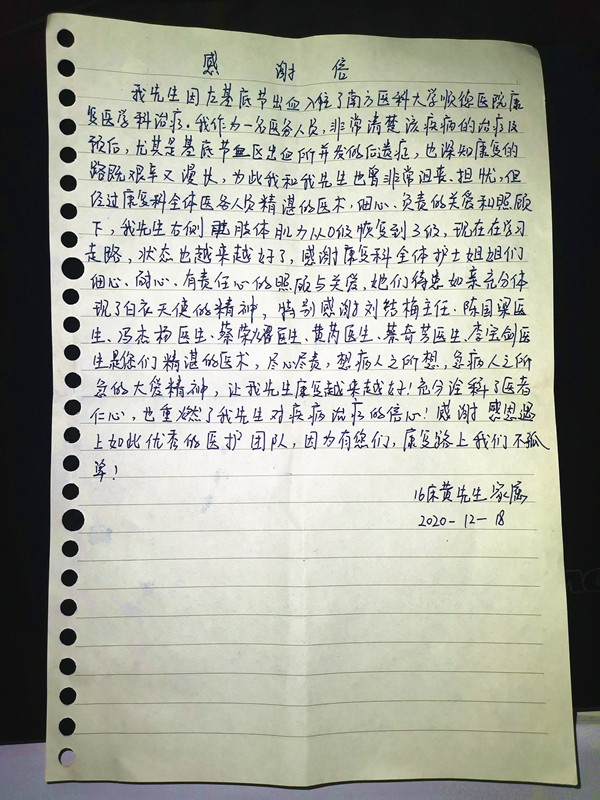 感谢信
我先生因左基底节出血入住了南方医科大学顺德医院康
复医学科治疗。我作为一名医务人员，非常清楚该疾病的治疗及
预后，尤其是基底节区出血所并发的后遗症，也深知康复的
路既艰辛又漫长，为此我和我先生也曾非常沮丧、担忧，但
经过康复科全体医务人员精湛的医术，细心、负责的关爱和照顾
下，我先生右侧肢体肌力从0级恢复到3级，现在在学习
走路，状态也越来越好了，感谢康复科全体护士姐姐们
细心、耐心、有责任心的照顾与关爱，她们待患如亲充分体
现了白衣天使的精神，特别感谢刘结梅主任、陈国梁医
生、冯杰扬医生、蔡荣耀医生、黄芮医生、蔡奇芳医生、李宝剑医
生是您们精湛的医术，尽心尽责，想病人之所想，急病人之所
急的大爱精神，让我先生康复越来越好！充分诠释了医者
仁心，也重燃了我先生对疾病治疗的信心！感谢 感恩遇
上如此优秀的医护团队，因为有您们，康复路上我们不孤
单！
16床黄先生家属
2020-12-18